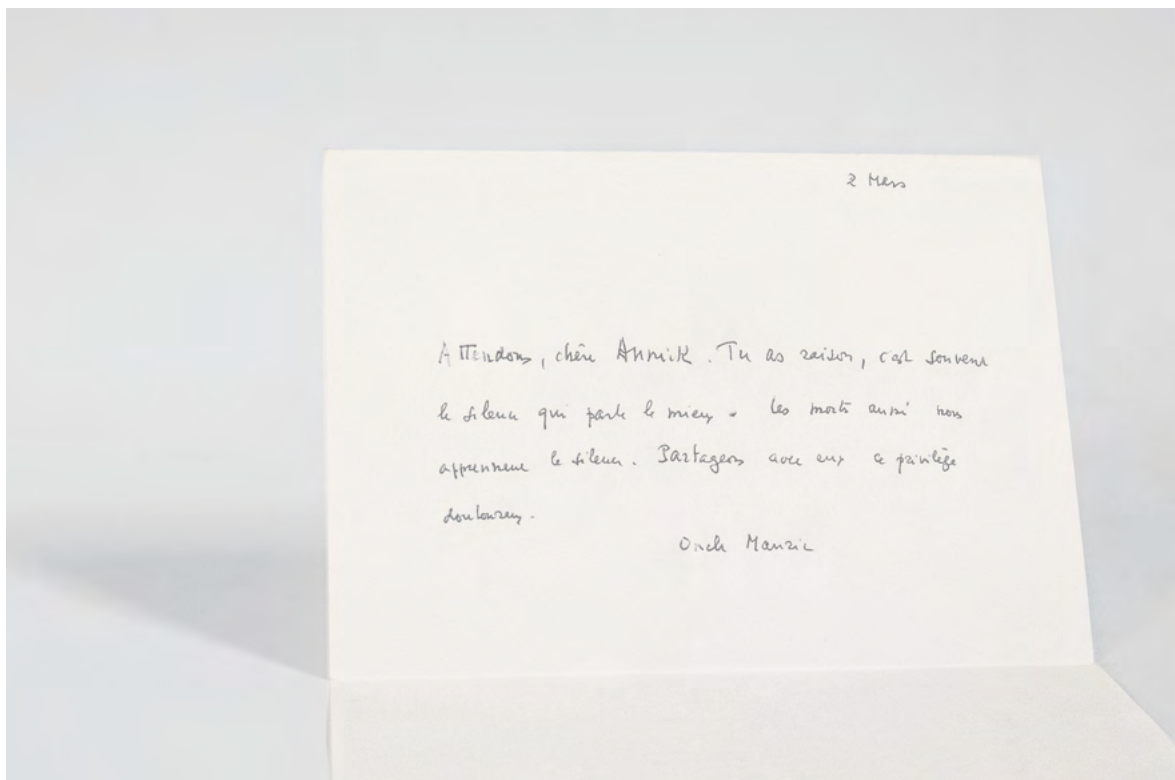 2 Mars
Attendons, chère Annick. Tu as raison, c'est souvent
le silence qui parle le mieux. Les morts aussi nous
apprennent le silence. Partageons avec eux ce privilège
douloureux.
Oncle Maurice